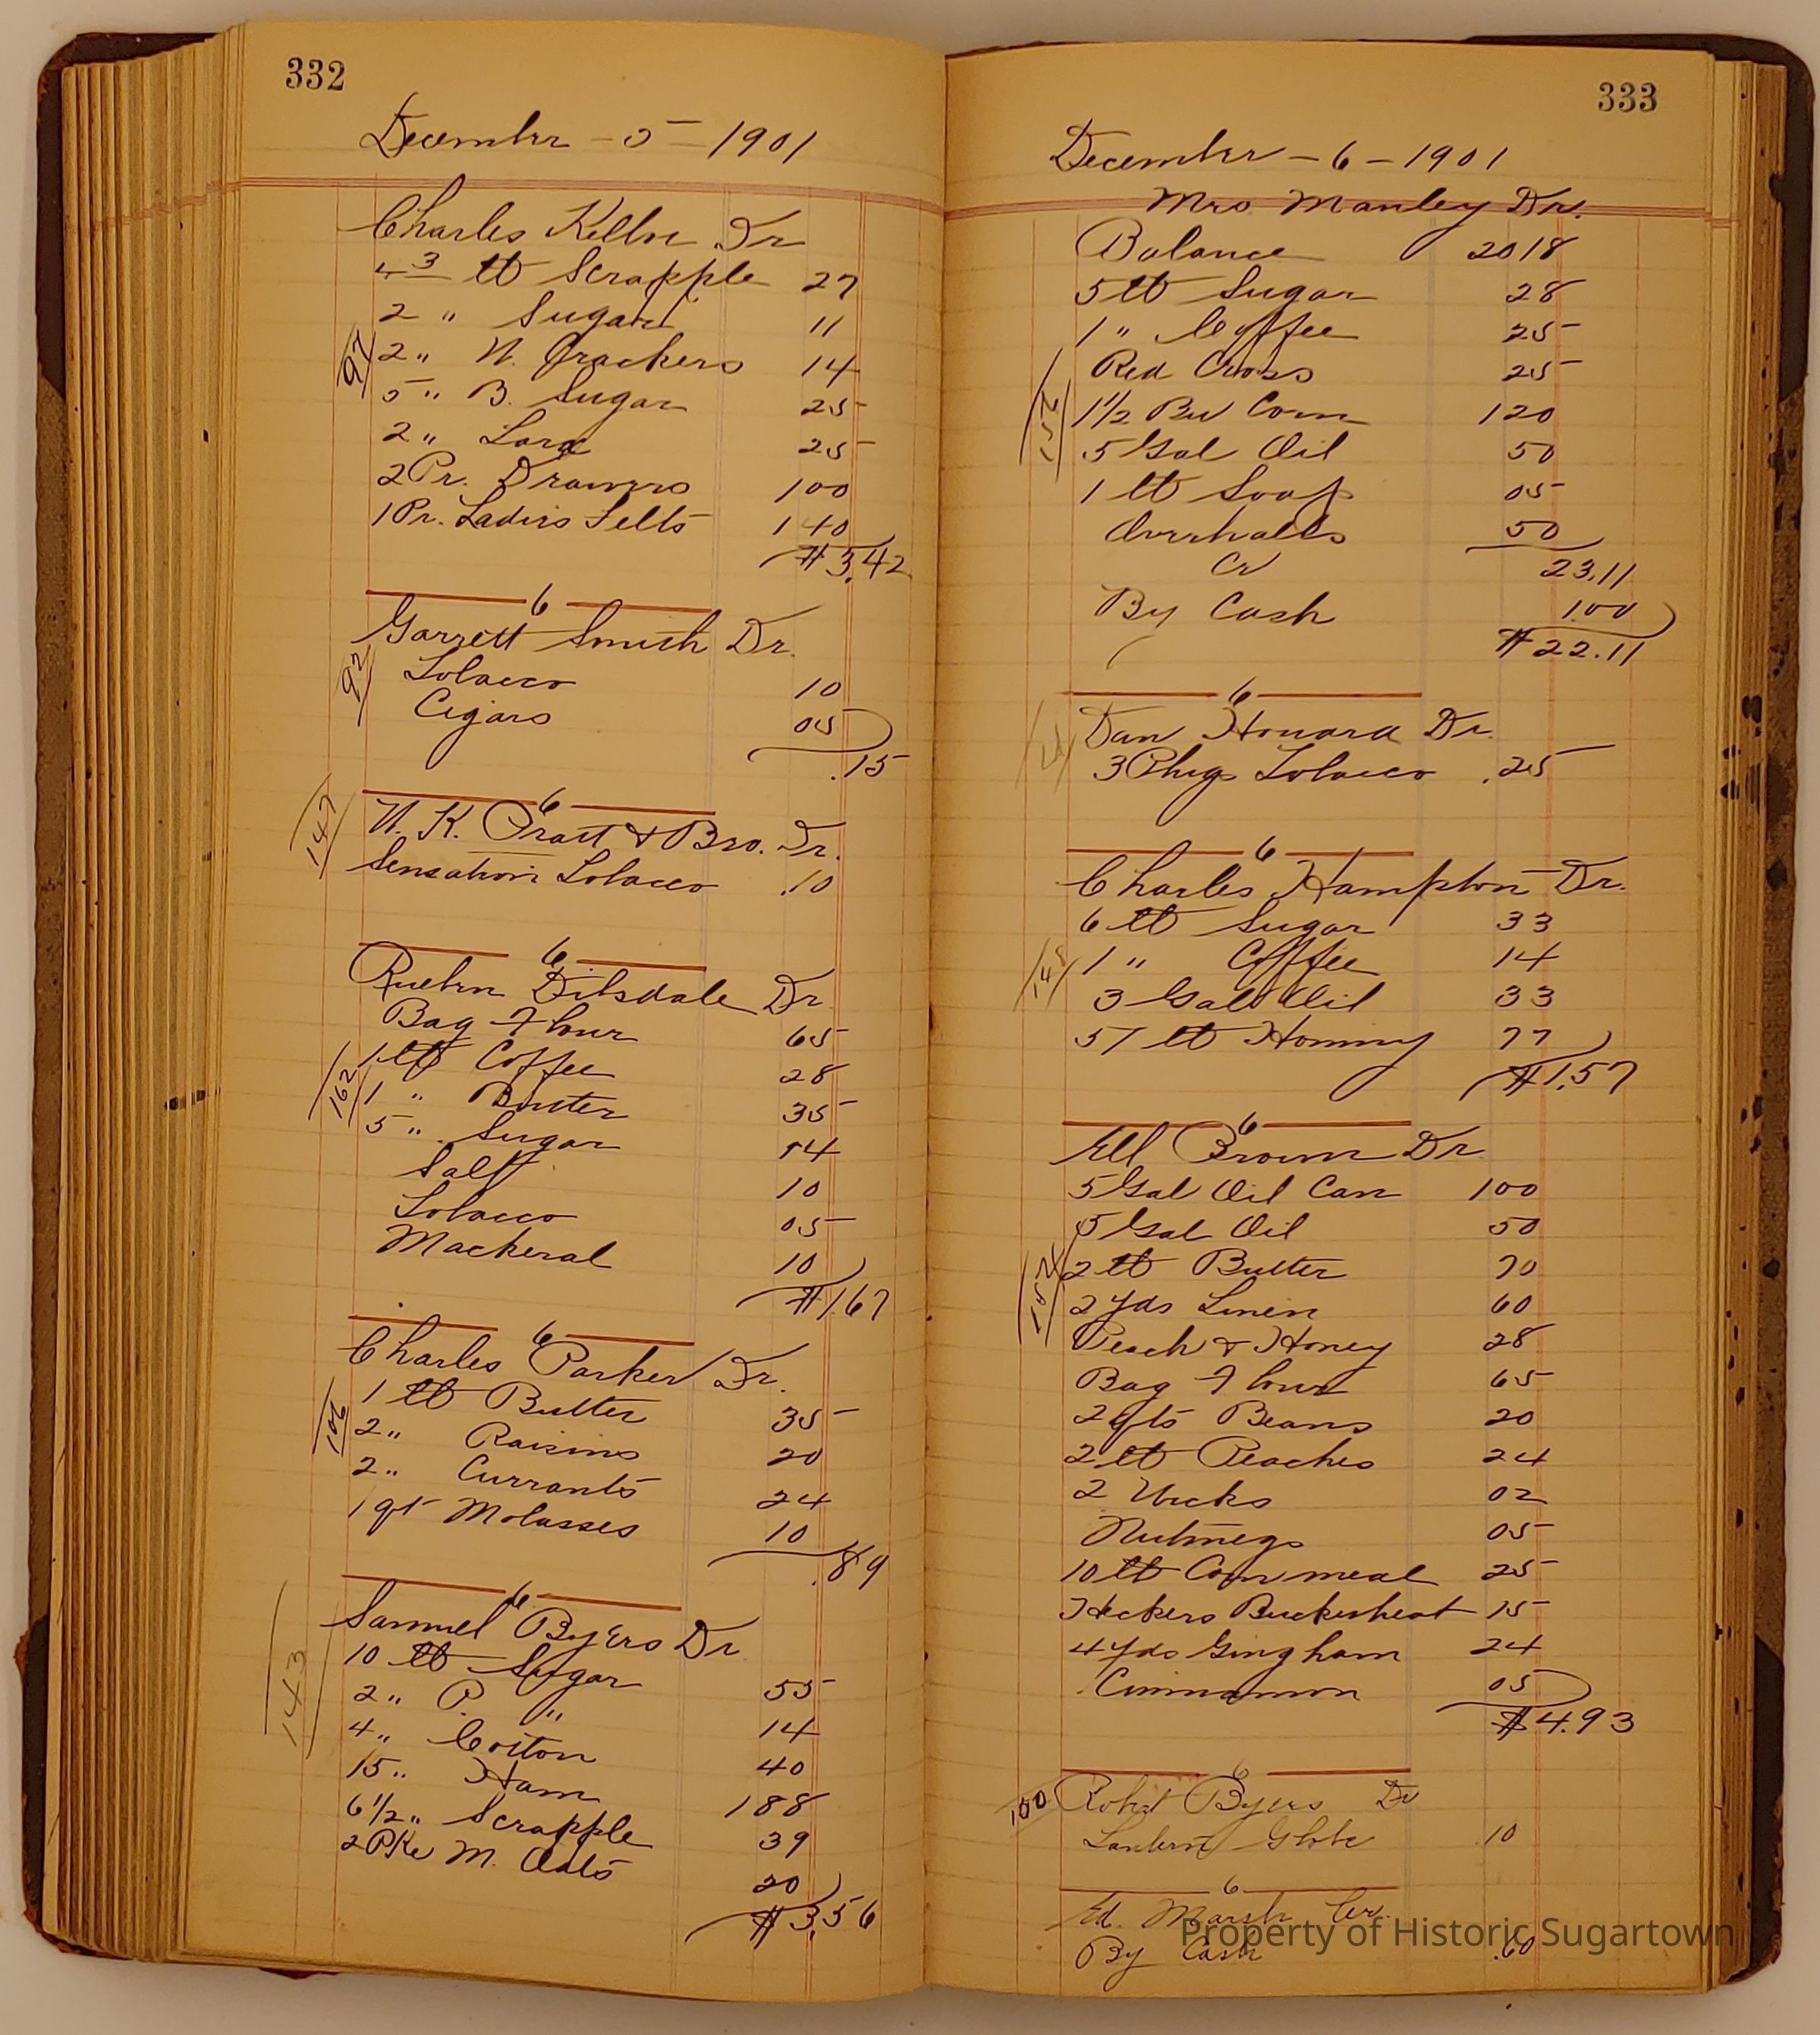 332
December - 5 - 1901
Charles Dr
4 3/4 lb Scrapple 27
2 " Sugar 11
97
2 " W. Crackers 14
5 " B. Sugar 25
2 " Lard 25
2 Pr. Drawers 100
1 Pr. Ladies Felts 140
$3.42
6
Garrett Smith Dr.
92
Tobacco 10
Cigars 05
.15
6
147
W. K. Pratt & Bro. Dr.
Sensation Tobacco .10
6
Ruebin Dilsdale Dr
Bag Flour 65
1 lb Coffee 28
162
1 " Butter 35
5 " Sugar 14
Salt 10
Tobacco 05
Mackeral 10
$1.67
6
Charles Parker Dr.
1 lb Butter 35
106
2 " Raisins 20
2 " Currants 24
1 qt Molasses 10
.89
6
Samuel Byers Dr
143
10 lb Sugar 55
2 " P. " 14
4 " Cotton 40
15 " Ham 188
6 1/2 " Scrapple 39
2 PKe M. Oats 20
$3.56
333
December - 6 - 1901
Mrs Manley Dr.
Balance 2018
5 lb Sugar 28
1 " Coffee 25
Red Cross 25
1 1/2 Bu Corn 120
5 Gal Oil 50
1 lb Soap 05
Overhalls 50
Cr 23.11
By Cash 1.00
$22.11
6
Dan Howard Dr.
3 Plugs Tobacco .25
6
Charles Hampton Dr.
6 lb Sugar 33
148
1 " Coffee 14
3 Gals Oil 33
51 lb Hominy 77
$1.57
6
Ell Brown Dr
5 Gal Oil Can 100
5 Gal Oil 50
2 lb Butter 70
2 yds Linen 60
Peach & Honey 28
Bag Flour 65
2 qts Beans 20
2 lb Peaches 24
2 Wicks 02
Nutmegs 05
10 lb Corn meal 25
Heckers Buckwheat 15
4 Yds Gingham 24
Cinnamon 05
$4.93
6
100
Robt Byers Dr
Lantern Globe .10
6
Ed. Marsh Cr.
By Cash .60
Property of Historic Sugartown